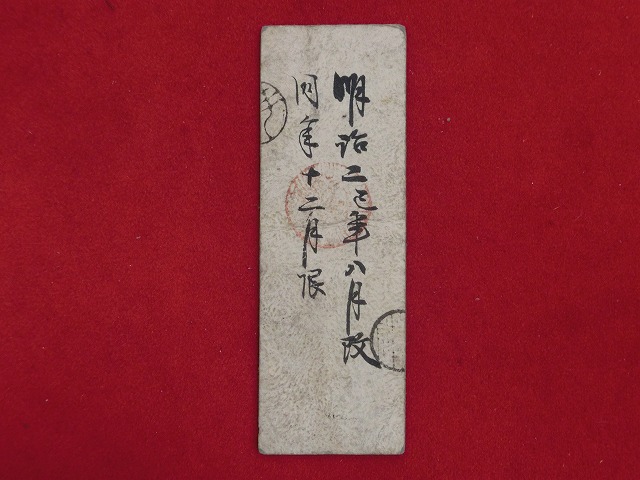 明治二巳年八月改
同年十二月限